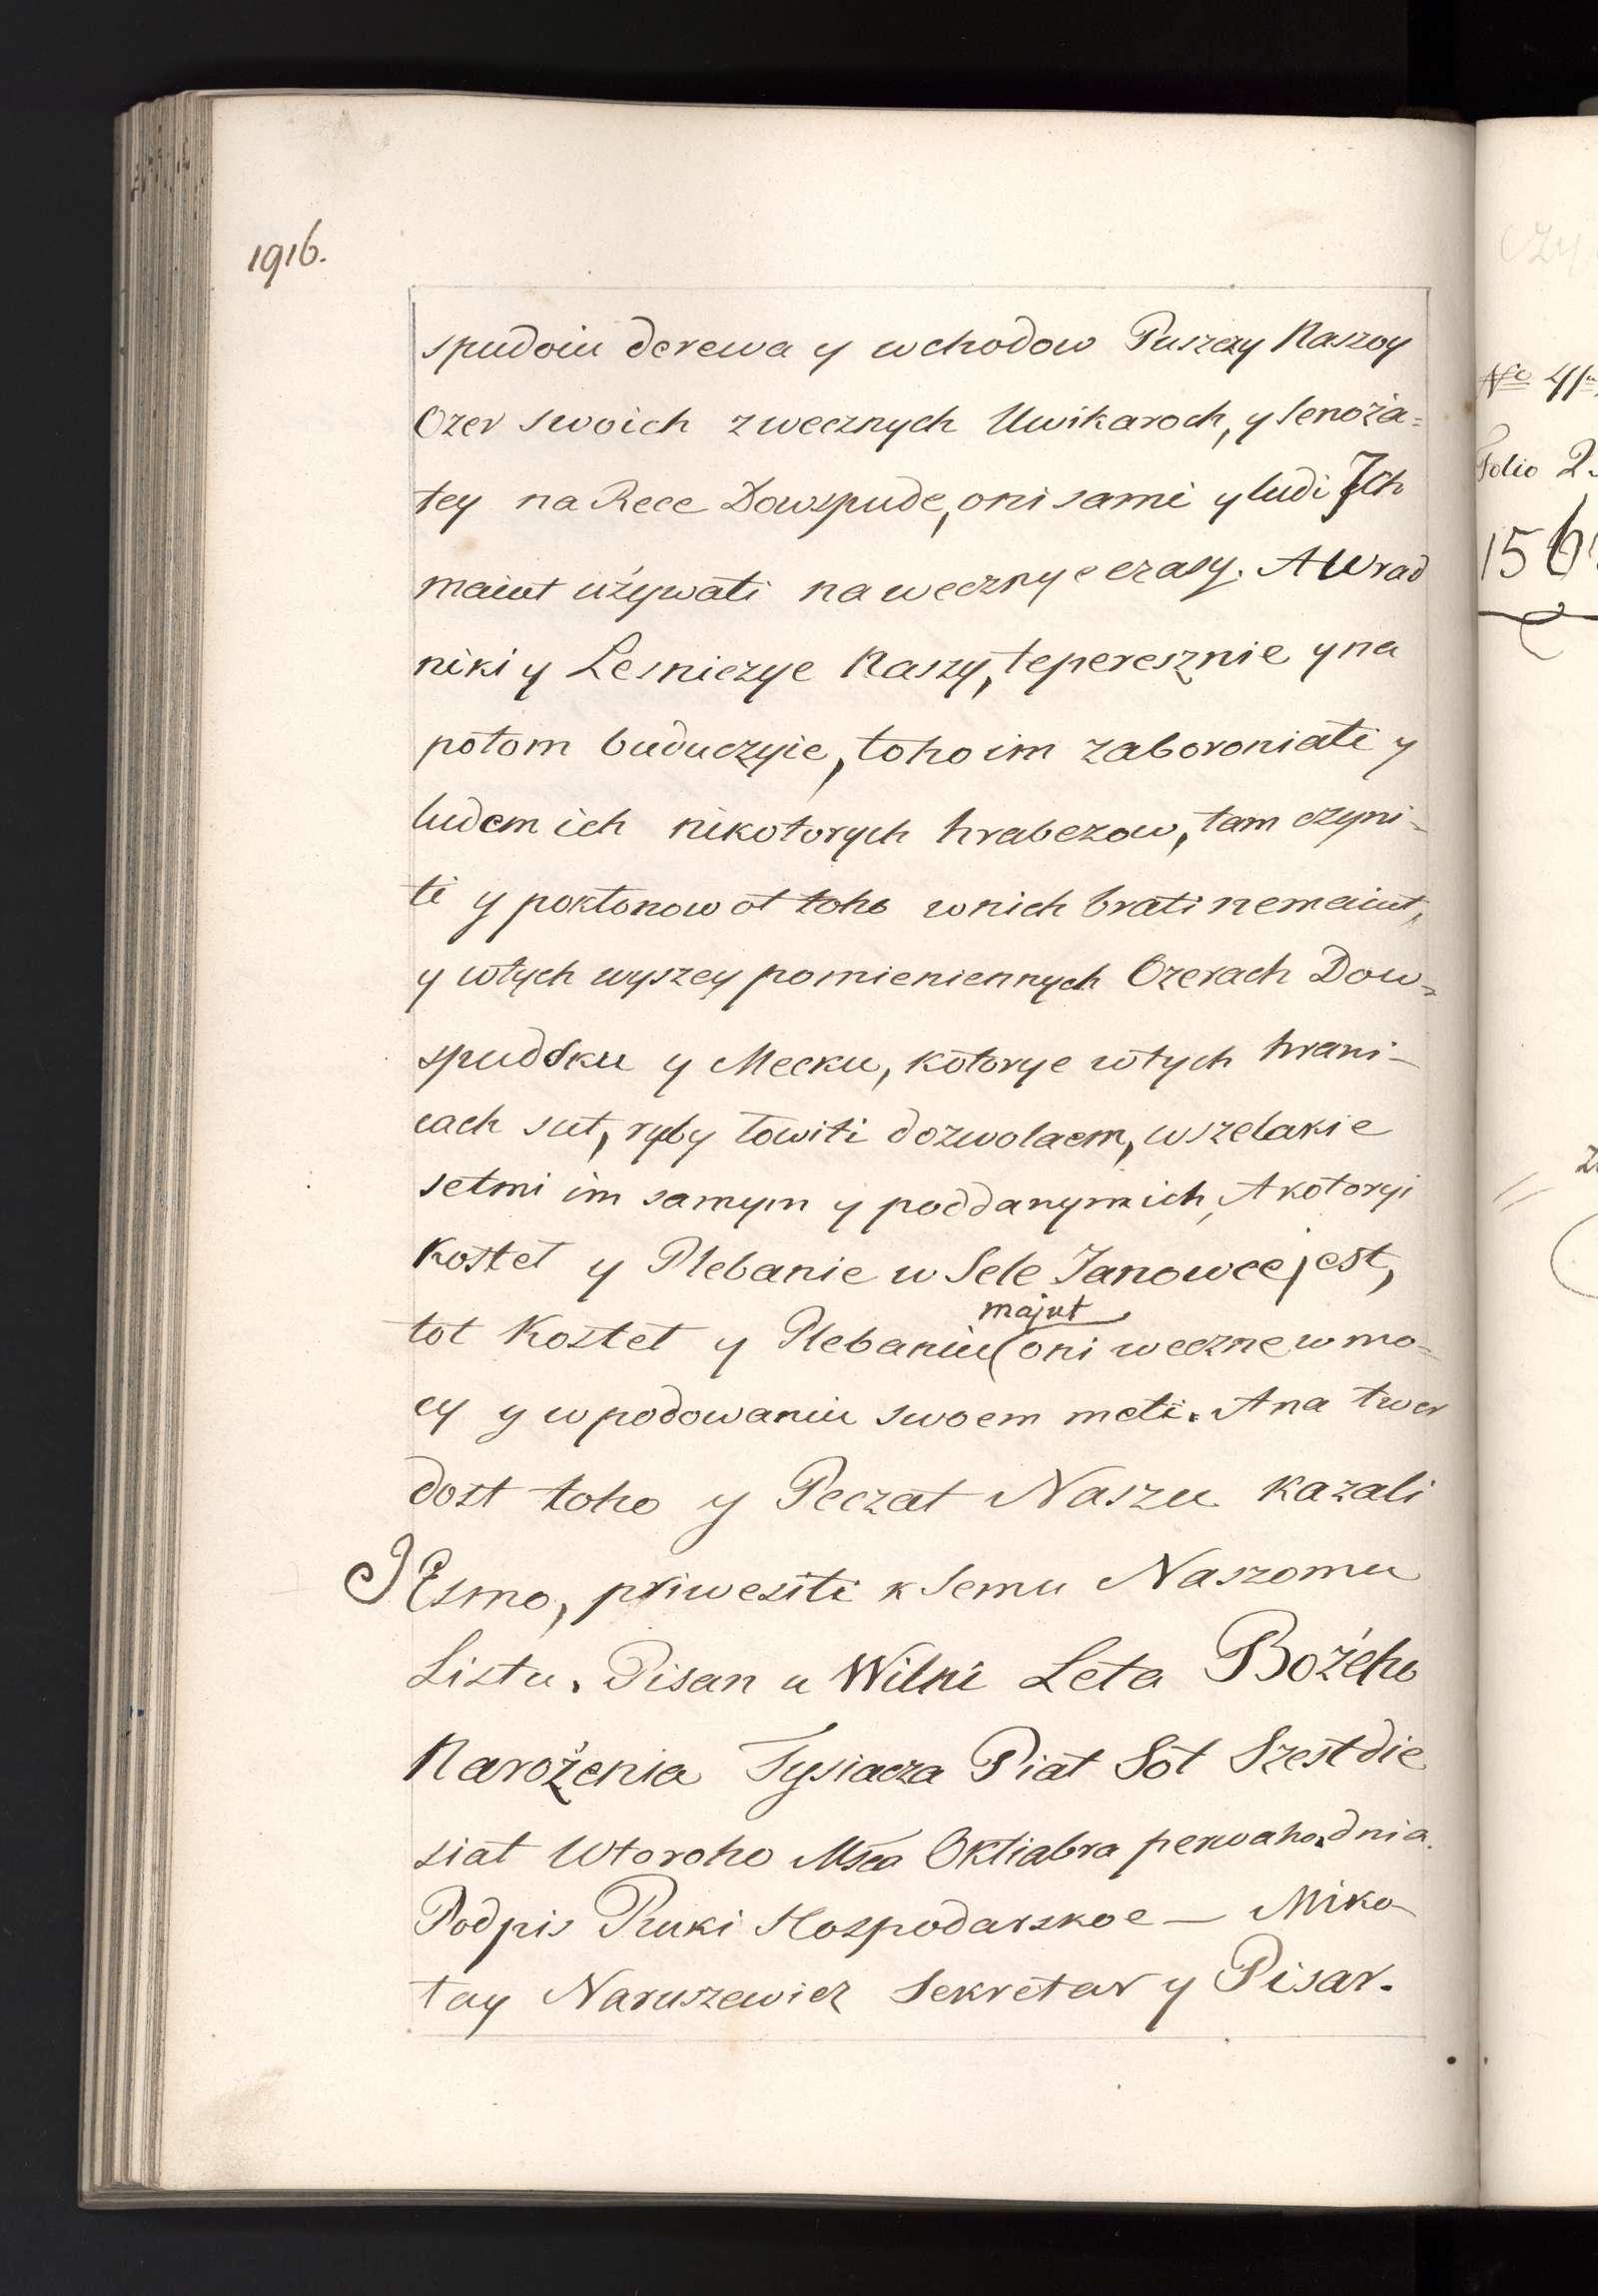 1916.
spudoiu derewa y wchodow Puszczy Naszoy
Ozer swoich z wecznych Uwikaroch, y senoża=
tey na Rece Dowspude, oni sami y ludi Ich
maiut używati na wecznye czasy. A Wrad
niki y Lesniczye Naszy, teperesznie y na
potom buduczyie, toho im zaboroniati y
ludem ich nikotorych hrabezow, tam czyni-
ti y pokłonow ot toho w nich brati nemaiut,
y wtych wyszey pomieniennych Ozerach Dow-
spudsku y Mecku, kotorye wtych hrani-
cach sut, ryby łowiti dozwolaem, wszelakie
setmi im samym y poddanym ich, A kotoryi
Kosteł y Plebanie w Sele Janowce jest,
tot Kosteł y Plebaniu majut oni weczne w mo=
cy y w podowaniu swoem meti. A na twer
dost toho y Peczat Naszu kazali
JEsmo, priwesiti k Semu Naszomu
Listu. Pisan u Wilni Leta Bożeho
Narożenia Tysiacza Piat Sot Szestdie
siat Wtoroho Msca Oktiabra perwaho dnia.
Podpis Ruki Hospodarskoe — Miko-
łay Naruszewicz Sekretar y Pisar.
No
Folio 2
156